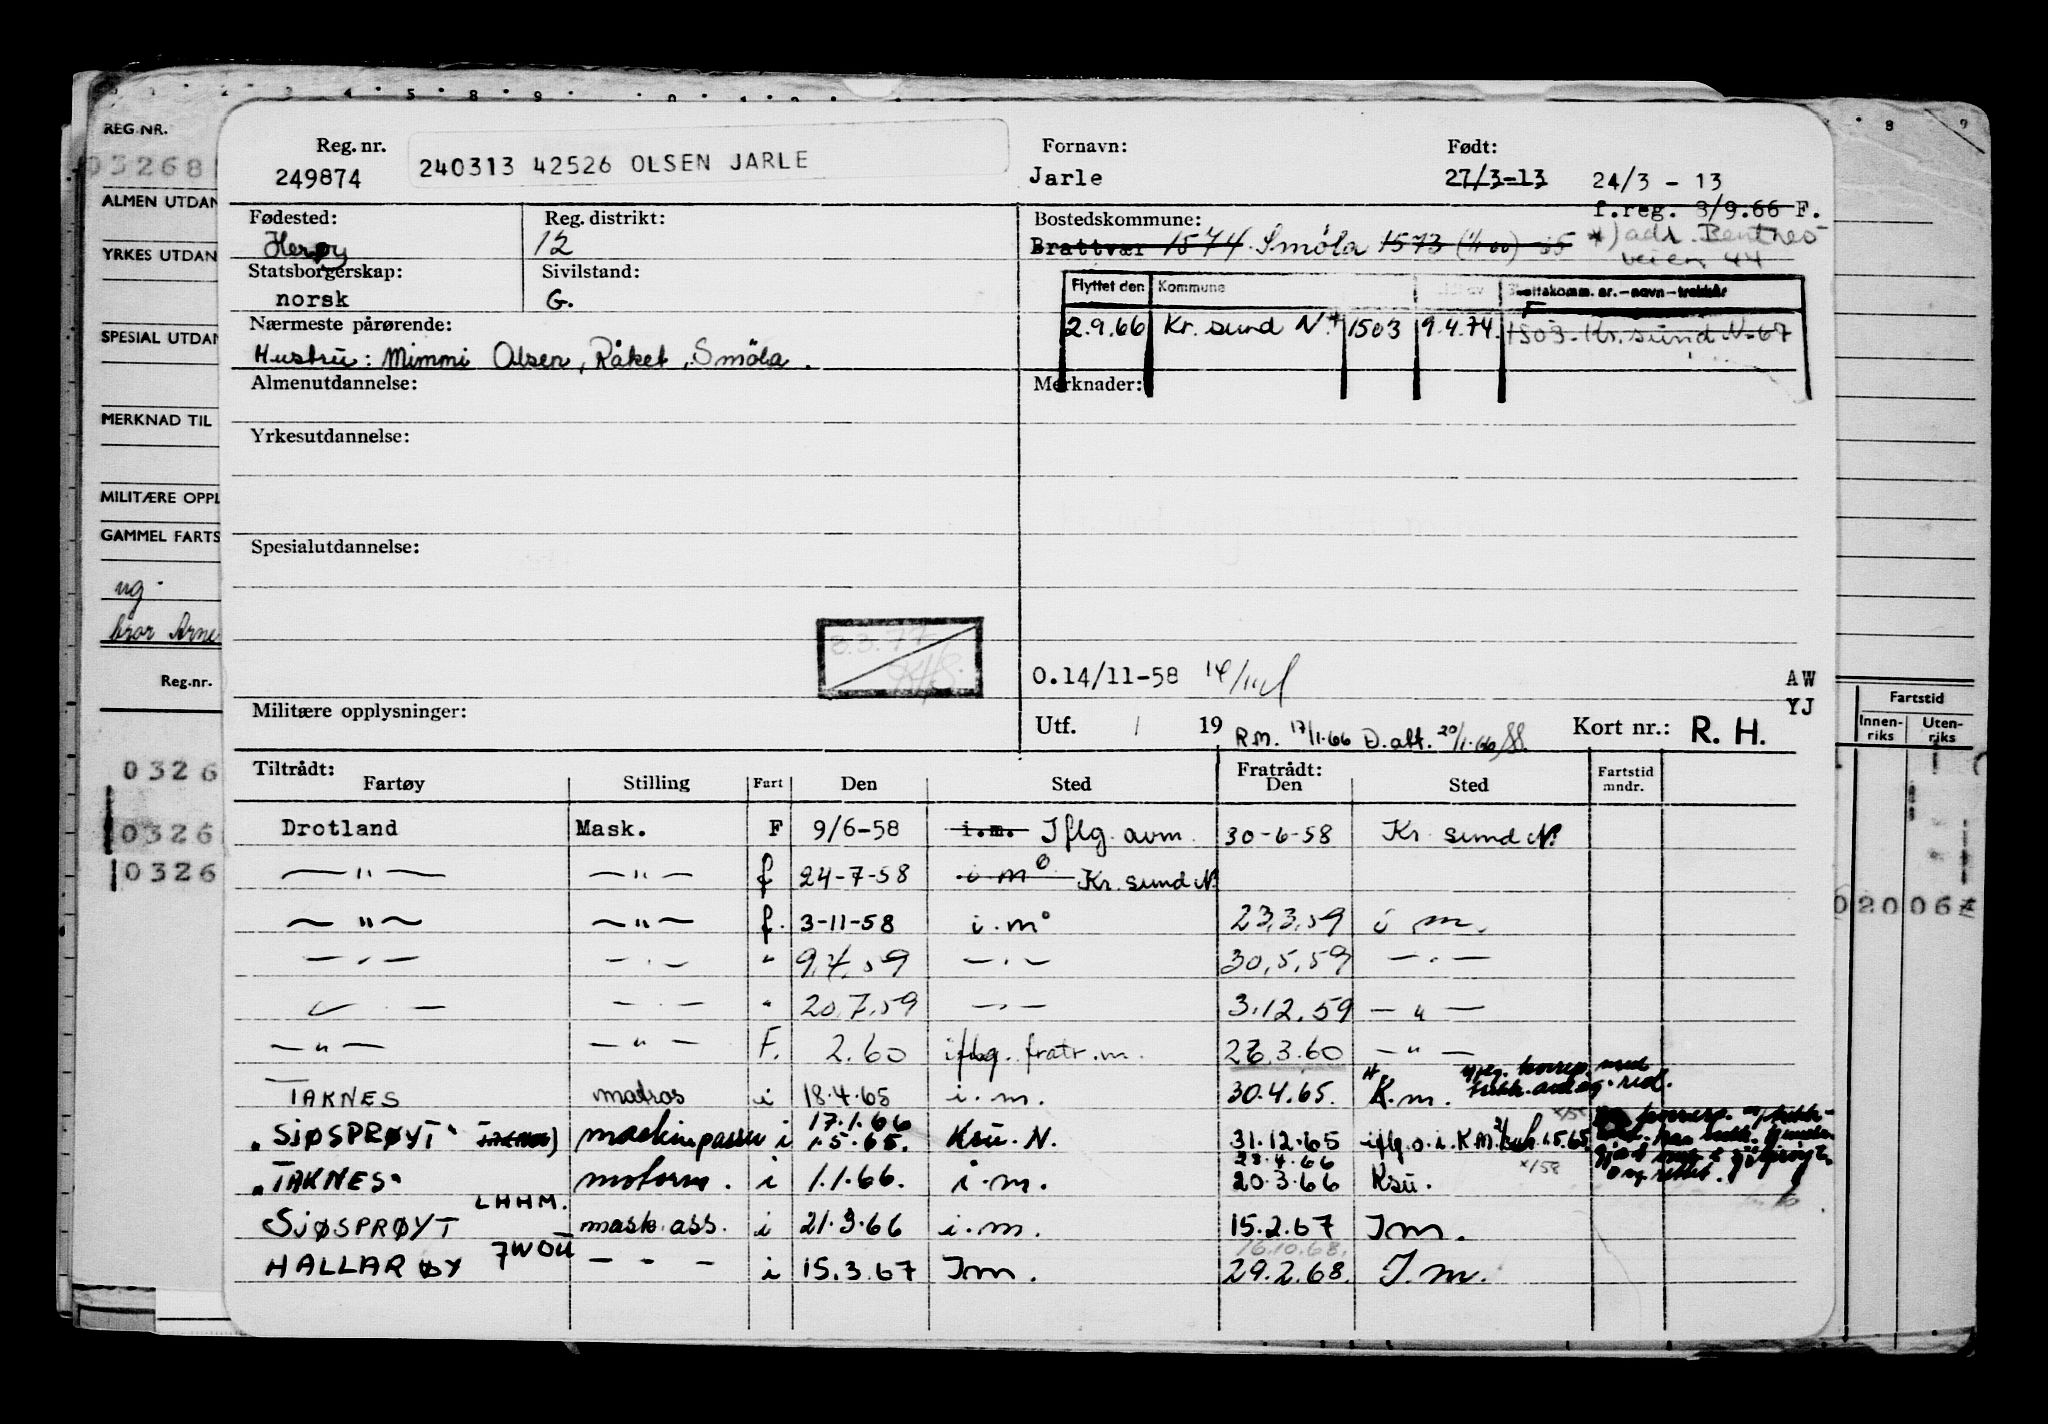 REG.NR.
03268
ALMEN UTDAN
YRKES UTDAN
SPESIAL UTDAN
MERKNAD TIL
MILITÆRE OPPL
GAMMEL FARTS
ug.
bror Arne
Reg.nr.
0326
0326
0326
Reg. nr. 249874
240313 42526 OLSEN JARLE
Fornavn: Jarle
Født: 27/3-13 24/3 - 13
f.reg. 3/9.66 F.
Fødested: Herøy
Reg. distrikt: 12
Bostedskommune:
Brattvær 1574 Smöla 1573 (1/1 60) - 65
*) adr. Bentnes
veien 44
Statsborgerskap: norsk
Sivilstand: G.
Flyttet den Kommune
Skattekomm. nr. – navn – trekkår
2.9.66 Kr. sund N.+ 1503 9.4.74. 1503 - Kr. sund N-67
Nærmeste pårørende:
Hustru: Mimmi Olsen, Råket, Smöla.
Almenutdannelse:
Merknader:
Yrkesutdannelse:
Spesialutdannelse:
3.3.77
O.14/11-58 14/11
AW
YJ
Militære opplysninger:
Utf. / 19 R.M. 17/1.66 D.alt. 20/1.66
Kort nr.: R. H.
Fartstid
Innen-riks Uten-riks
02006
Tiltrådt: Fratrådt:
Fartøy Stilling Fart Den Sted Den Sted Fartstid mndr.
Drotland Mask. F 9/6-58 i.m. Iflg. avm. 30-6-58 Kr. sund N.
—"— —"— f 24-7-58 i m° Kr. sund N.
—"— —"— f. 3-11-58 i.m° 23.3.59 i m.
—"— —"— " 9.4.59 —"— 30.5.59 —"—
—"— —"— " 20.7.59 —"— 3.12.59 —"—
—"— —"— F. 2.60 iflg. fratr.m. 26.3.60 —"—
TAKNES matros i 18.4.65 i.m. 30.4.65. K.m.
17.1.66
"SJØSPRØYT" maskinpasser i 1.5.65. Ksu. N. 31.12.65 iflg. o.i. K.M.
28.4.66
"TAKNES" motorm. i 1.1.66. i.m. 20.3.66 Ksu.
LHHM.
SJØSPRØYT mask. ass. i 21.3.66 i.m. 15.2.67 Im.
16.10.68.
HALLARØY — " — i 15.3.67 Im. 29.2.68. I.m.